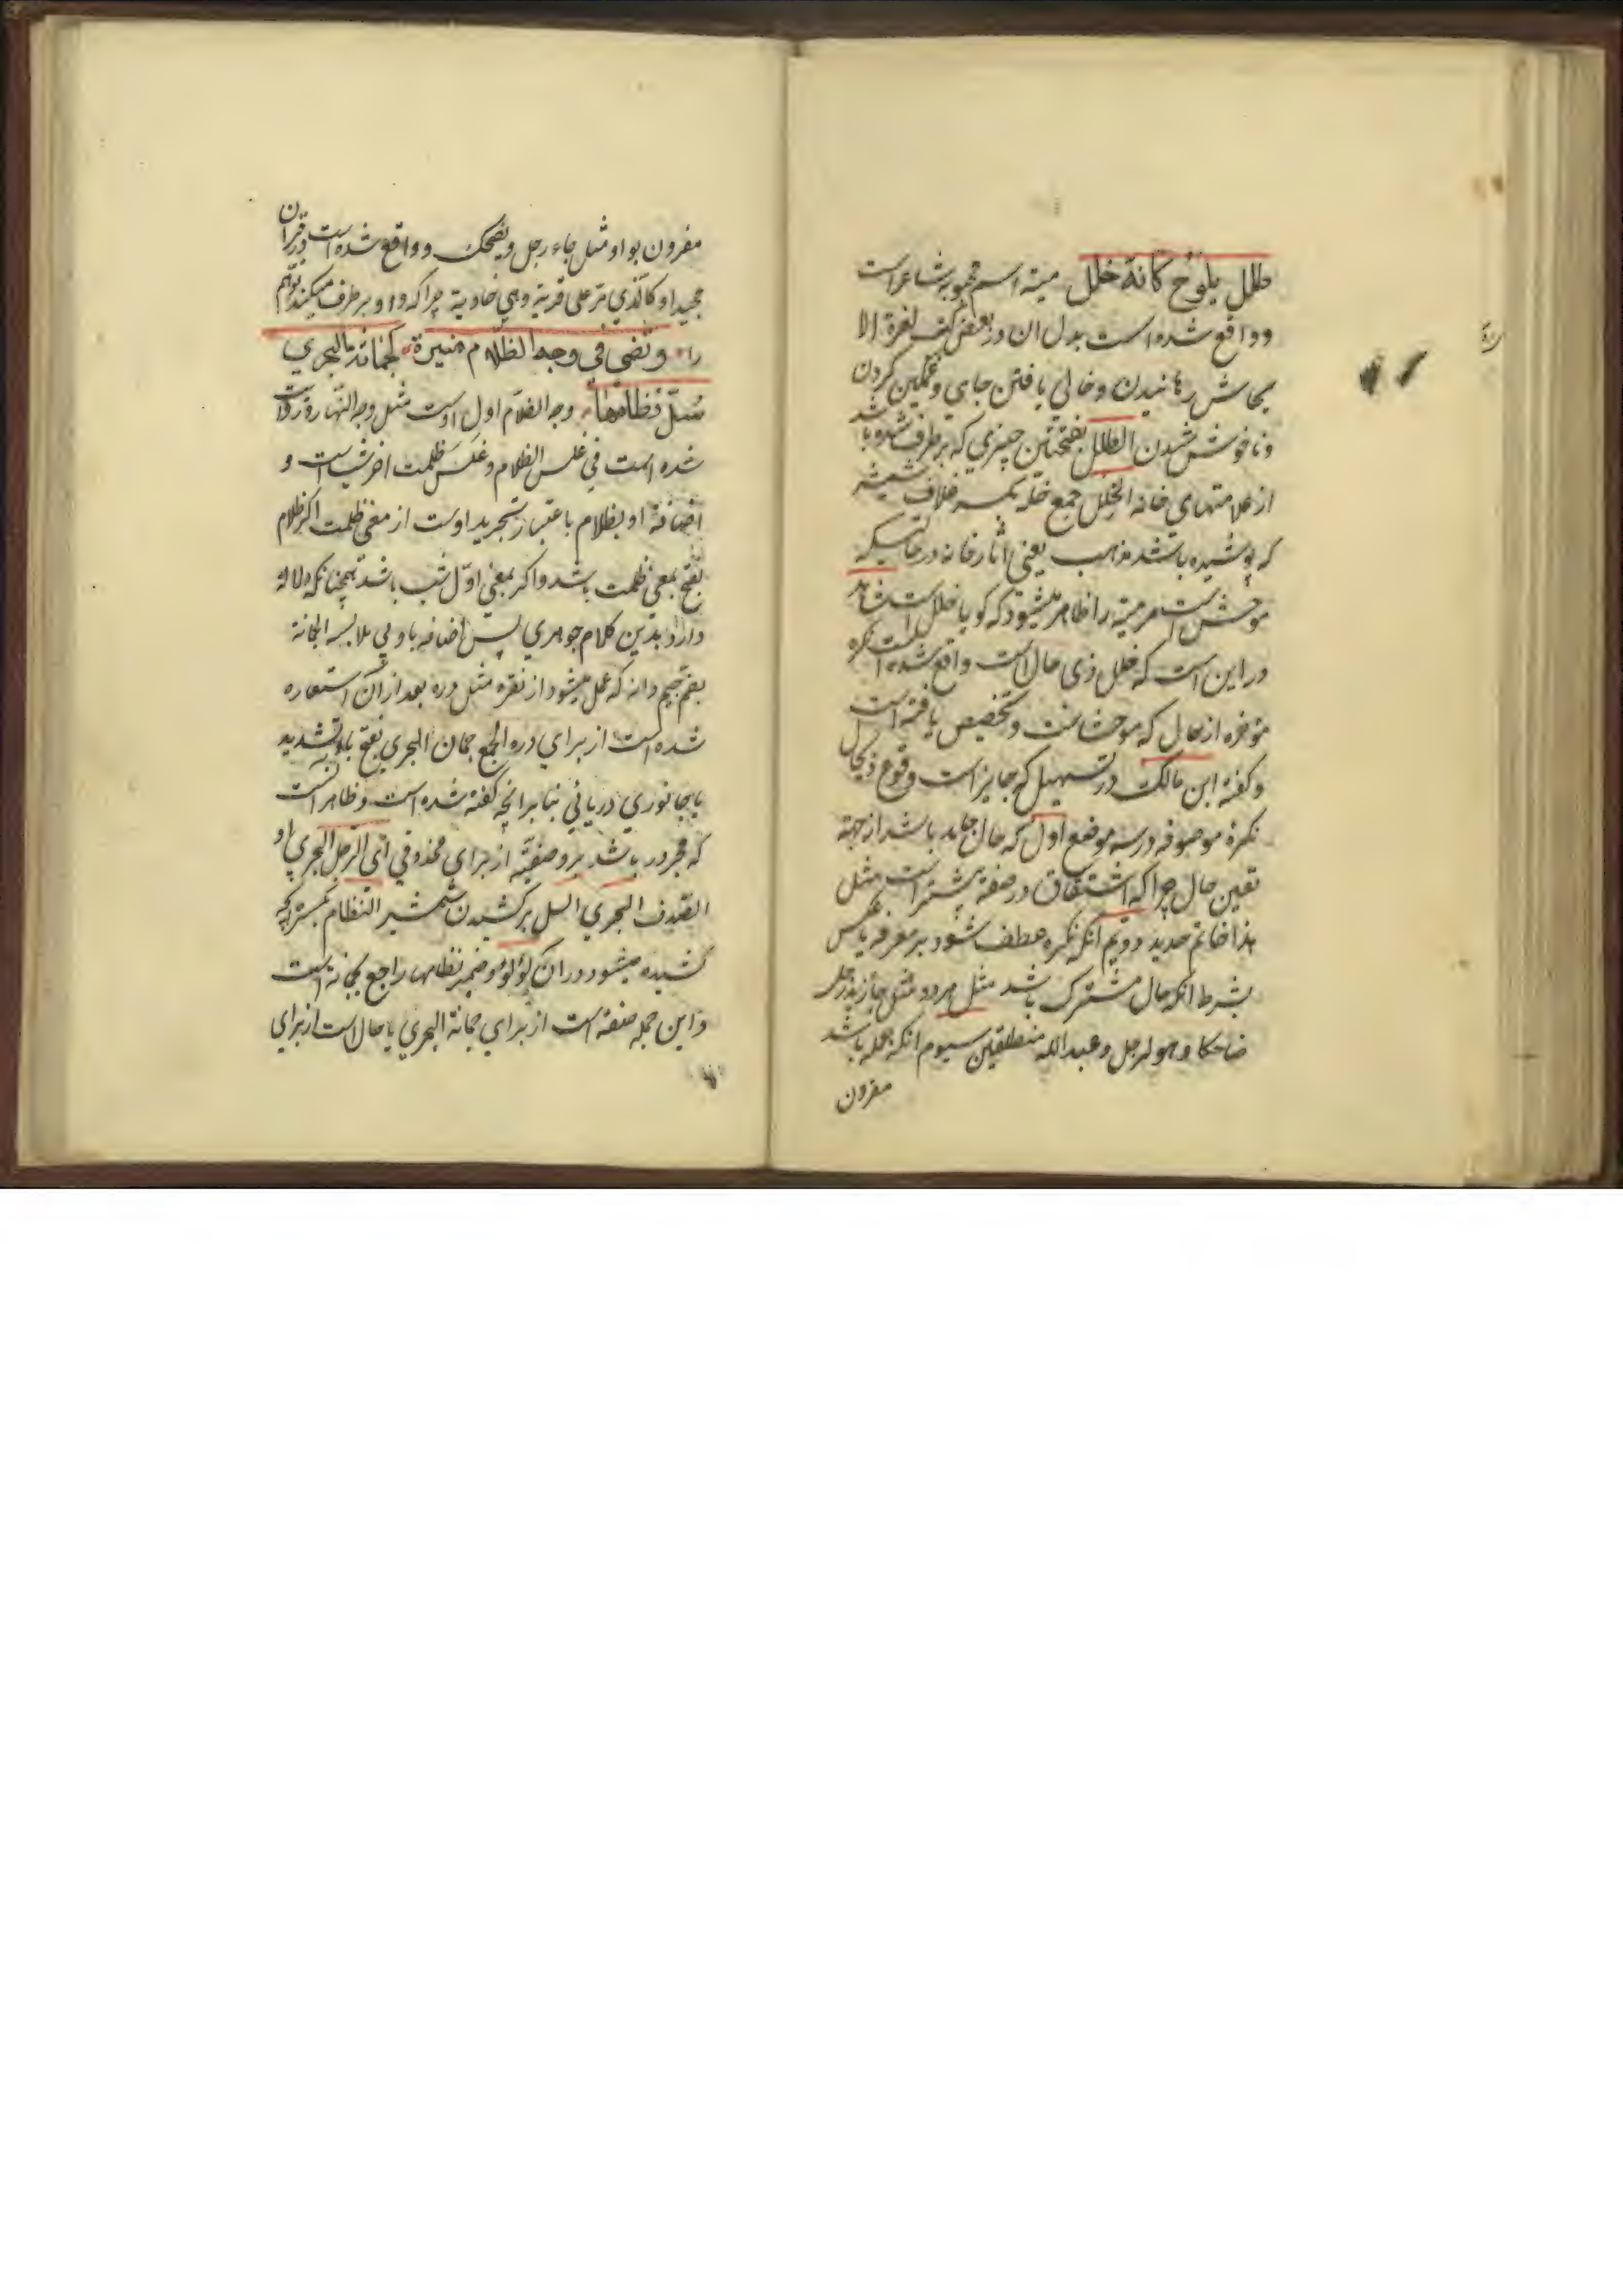 طلل یلوح کانه خلل میته اسم محبوبه شاعر است
و واقع شده است بدل ان در بعض کتب لغرة الا
یحاش رهانیدن و خالی یافتن جای و غمکین کردن
و ناخوش شدن الطلل بفتحتین چیزی که برطرف شده باشد
از علامتهای خانه الخلل جمع خله بکسر غلاف شمشیر
که پوشیده باشند مذهب یعنی اثار خانه در حالتیکه
موحش است مر میته را ظاهر میشود که کویا خلل است شاهد
در این است که طلل ذی حال است واقع شده است نکره
مؤخره از حال که موحشاست و تخصیص یافته است
و کفته ابن مالک در تسهیل که جایز است وقوع ذیحال
نکرهٔ موصوفه در سه موضع اول که حال جامد باشد از جهته
تعین حال چرا که اشتقاق در صفة بیشتر است مثل
هذا خاتم حدید دویم انکه نکره عطف شود بر معرفه یا عکس
بشرط انکه حال مشترک باشد مثل مردد مثل جاء زید و رجل
ضاحکا و هو لرجل و عبد الله منطلقین سیوم انکه جمله باشد
مقرون
مقرون بواو مثل جاء رجل و یضحک و واقع شده است در قران
مجید او کالذی مر علی قریة وهی خاویة چرا که واو برطرف میکند توهم
را و تضی فی وجه الظلام منیرة کجمانة البحری
سل نظامها وجه الظلام اول اوست مثل وجه النهار و روایت
شده است فی غلس الظلام و غلس ظلمت اخر شب است و
اضافة او بظلام باعتبار تجرید اوست از معنی ظلمت اکر ظلام
بفتح بمعنی ظلمت باشد و اکر بمعنی اول شب باشد همچنانکه دلالة
دارد بدین کلام جوهری پس اضافه باو بی ملابسه الجمانة
بضم جیم دانه که عمل میشود از نقره مثل دره بعد از ان استعاره
شده است از برای دره الجمع جمان البحری بفتح با و تشدید
یا جانوری دریائی بنا برانچه کفته شده است و ظاهر است
که مجرور باشد بر وصفیة از برای محذوفی ای الرجل البحری او
الصدف البحری السل برکشیدن شمشیر النظام بکسر انچه
کشیده میشود در ان لؤلؤ و ضمیر نظامها راجع بجمانة است
و این جمله صفة است از برای جمانة البحری یا حال است از برای